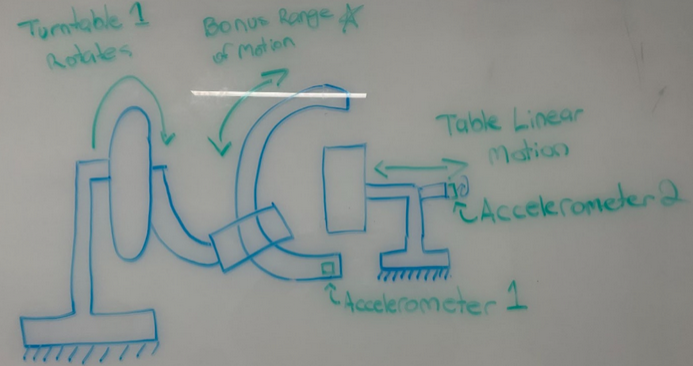 Turntable 1
Rotates
Bonus Range ☆
of Motion
Table Linear
Motion
Accelerometer 2
Accelerometer 1